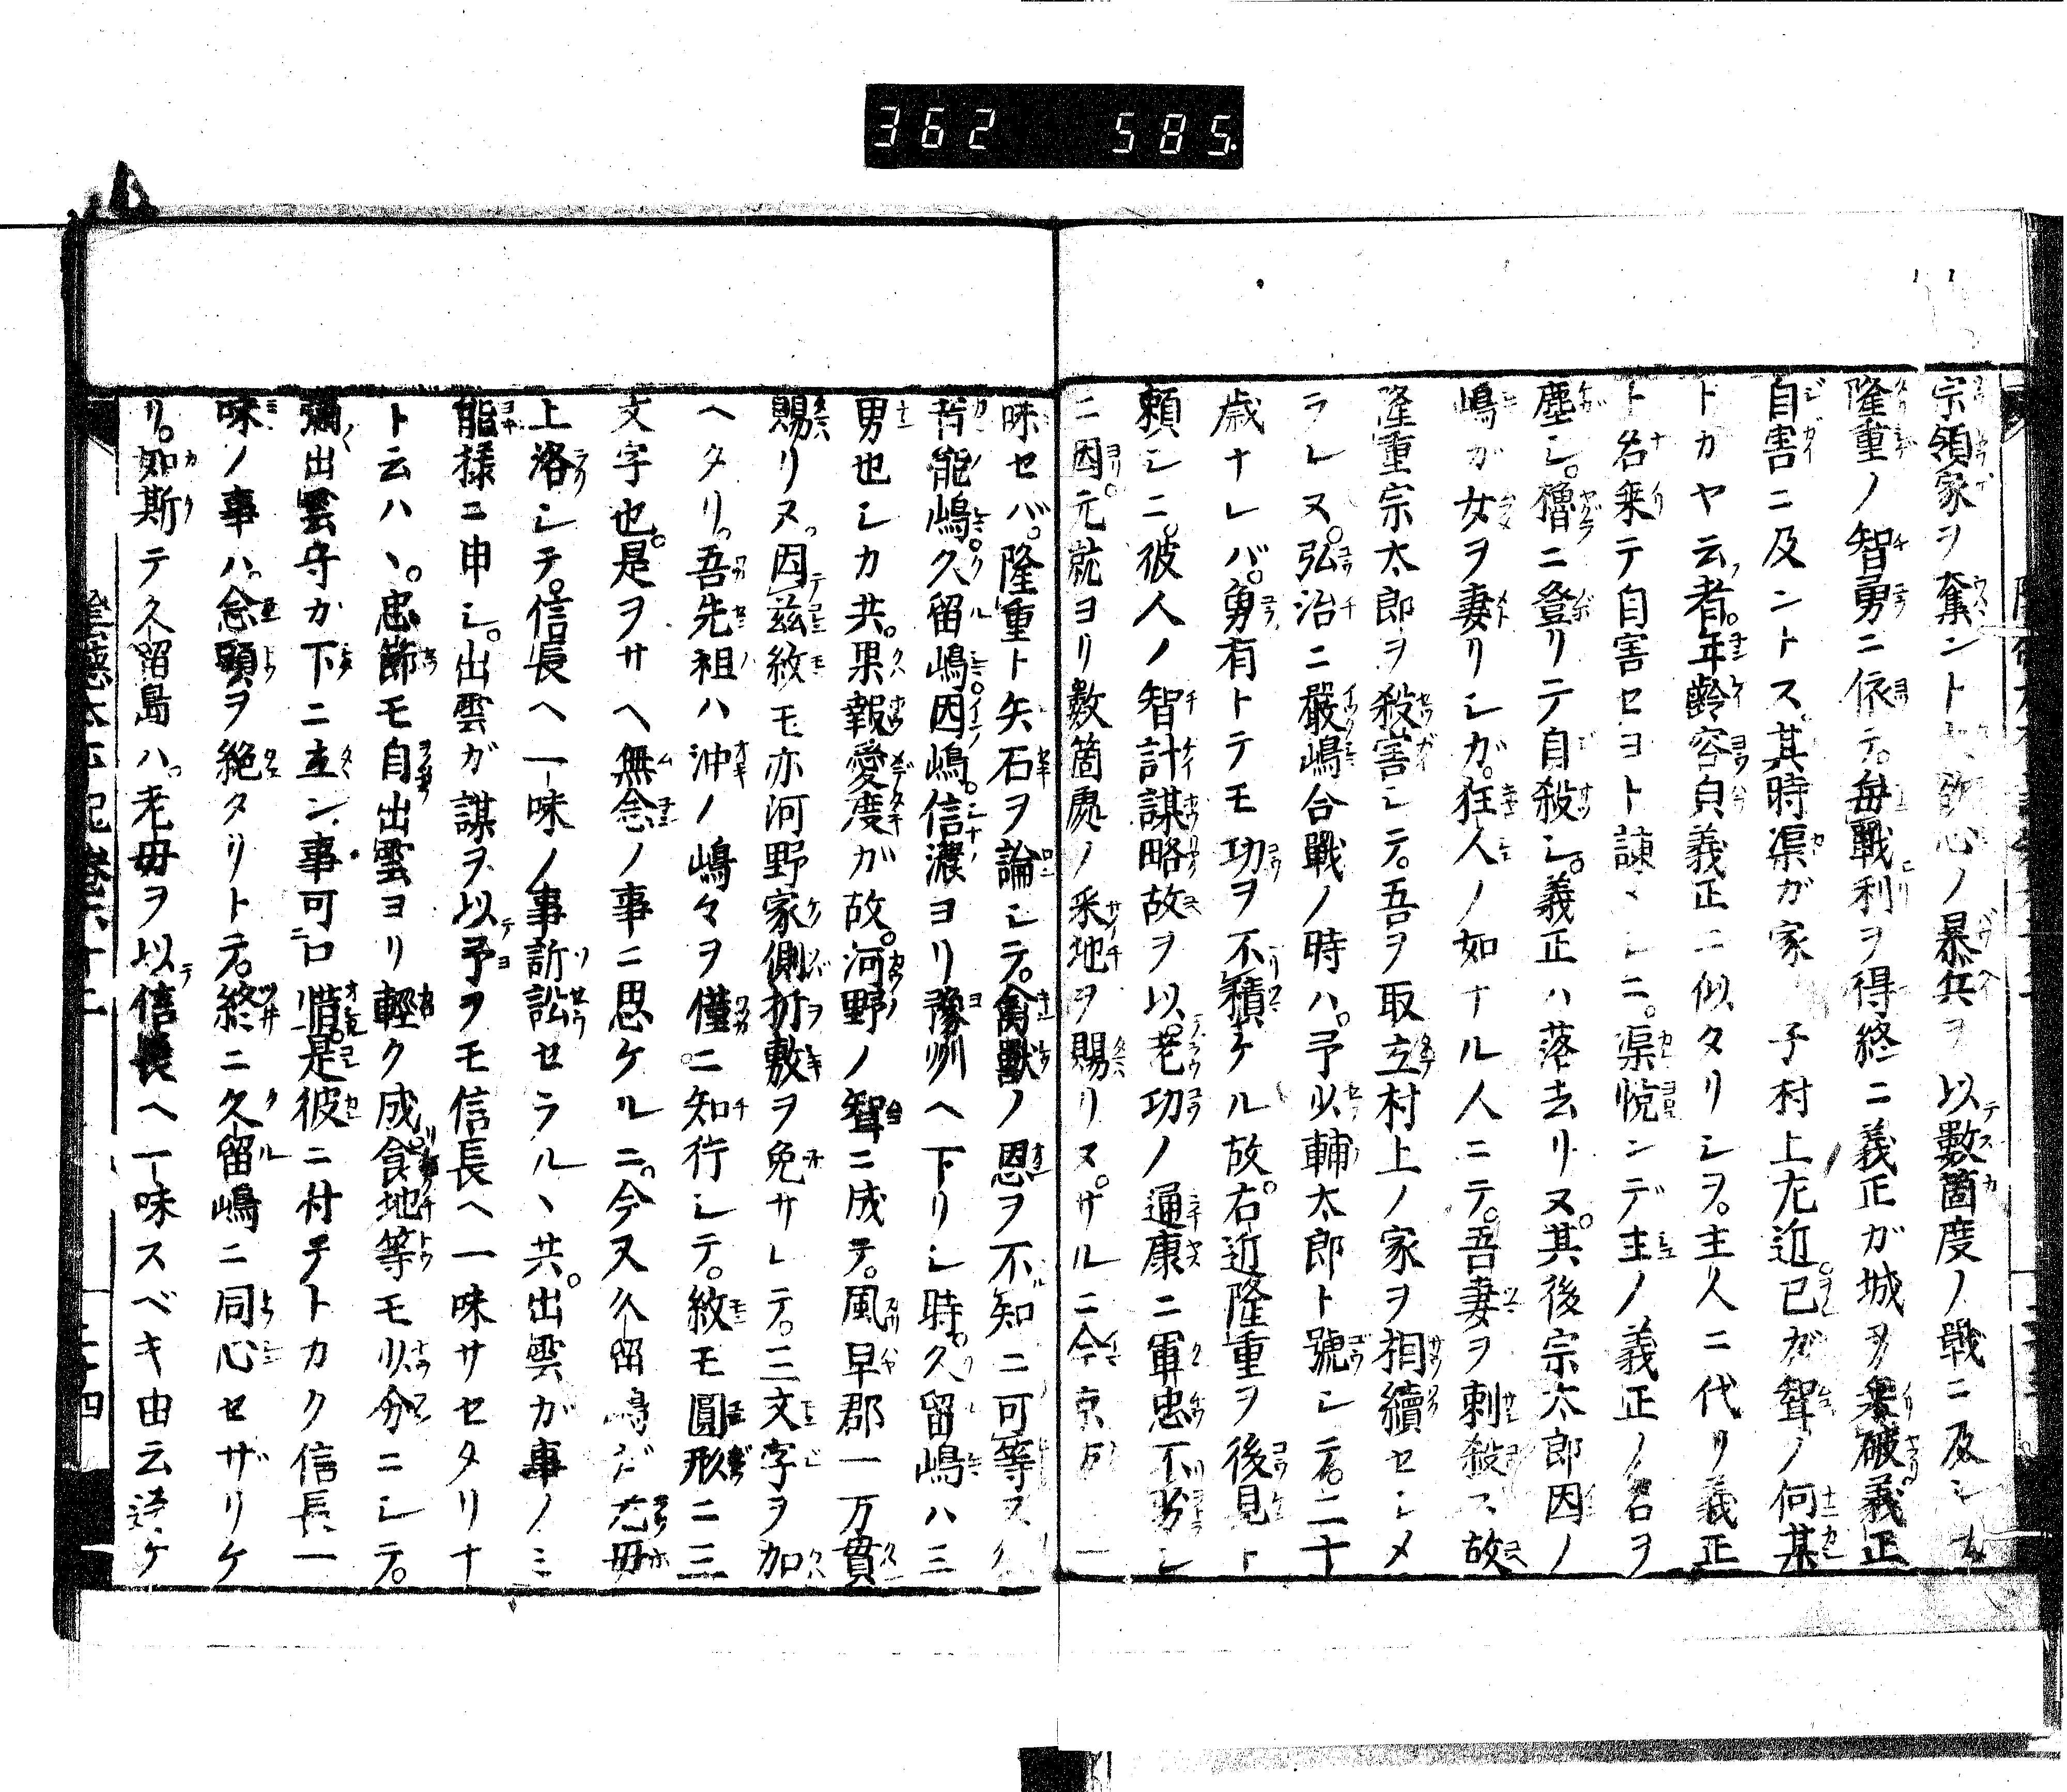 362 585.
宗領家ヲ奪ント 欲心ノ暴兵ヲ以數箇度ノ戰ニ及シカ
隆重ノ智勇ニ依テ。毎戰利ヲ得終ニ義正ガ城ヲ乗破。義正
自害ニ及ントス。其時渠ガ家 子村上左近。已ガ聟ノ何某
トカヤ云者。年齢容皃義正ニ似タリシヲ。主人ニ代リ義正
ト名乗テ自害セヨト諌ヽシニ。渠悦ンデ主ノ義正ノ名ヲ
塵シ。櫓ニ登リテ自殺シ。義正ハ落去リヌ。其後宗太郎因ノ
嶋ガ女ヲ妻リシガ。狂人ノ如ナル人ニテ。吾妻ヲ刺殺ス故
隆重宗太郎ヲ殺害シテ。吾ヲ取立村上ノ家ヲ相續セシメ
ラレヌ。弘治ニ嚴嶋合戰ノ時ハ。予少輔太郎ト號シテ。二十
歳ナレバ。勇有トテモ功ヲ不積ケル故。右近隆重ヲ後見ト
頼シニ。彼人ノ智計謀略故ヲ以。老功ノ通康ニ軍忠不劣シ
ニ因。元就ヨリ數箇處ノ采地ヲ賜リヌ。サルニ今京方ニ一
味セバ。隆重ト矢石ヲ論シテ。禽獸ノ恩ヲ不知ニ可等ス
昔能嶋。久留嶋。因嶋。信濃ヨリ豫州ヘ下リシ時。久留嶋ハ三
男也シカ共。果報愛度ガ故。河野ノ聟ニ成テ。風早郡一万貫
賜リヌ。因茲紋モ亦河野家側折敷ヲ免サレテ。三文字ヲ加
ヘタリ。吾先祖ハ沖ノ嶋々ヲ僅ニ知行シテ。紋モ圓形ニ三
文字也。是ヲサヘ無念ノ事ニ思ケルニ。今又久留嶋ガ尤毋
上洛シテ。信長ヘ一味ノ事訴訟セラルヽ共。出雲ガ事ノミ
能様ニ申シ。出雲ガ謀ヲ以予ヲモ信長ヘ一味サセタリナ
ト云ハヽ。忠節モ自出雲ヨリ輕ク成。食地等モ少分ニシテ。
彌出雲守か下ニ立ン事可口惜。是彼ニ付テトカク信長一
味ノ事ハ。念頭ヲ絶タリトテ。終ニ久留嶋ニ同心セザリケ
リ。如斯テ久留島ハ。老毋ヲ以信長ヘ一味スベキ由云送ケ